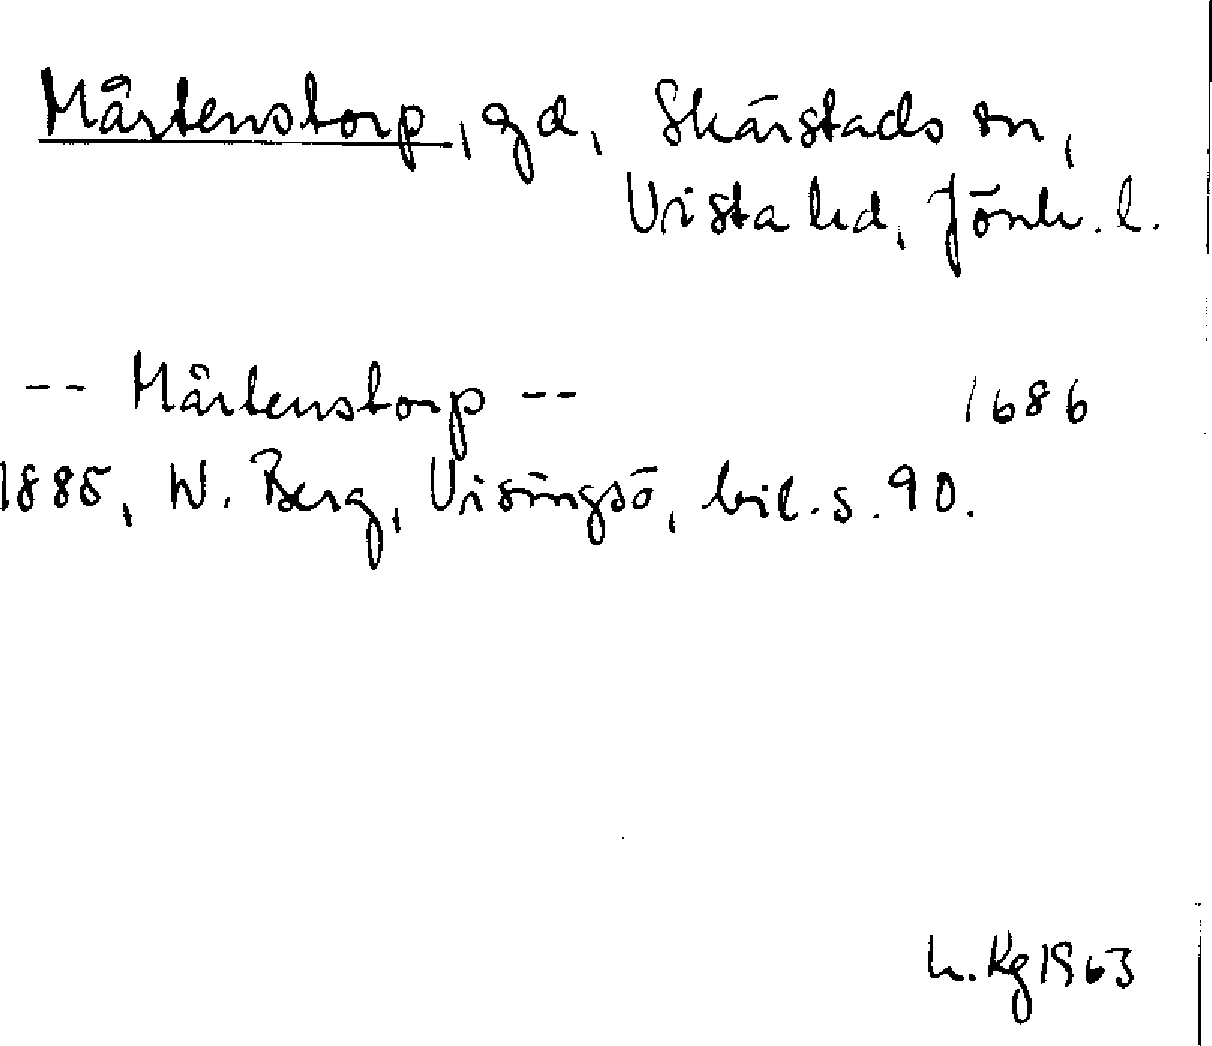 Mårtenstorp, gd, Skärstads sn,
Vista hd, Jönk. l.
-- Mårtenstorp -- 1686
1885, W. Berg, Visingsö, bil. s. 90.
h. Kg 1963